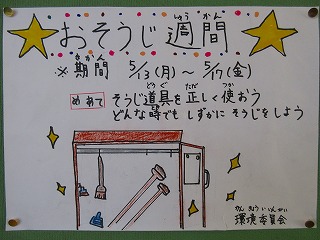 おそうじ週間
しゅうかん
※期間 5/13(月)～5/17(金)
きかん
めあて そうじ道具を正しく使おう
どうぐ ただ つか
どんな時でも しずかに そうじをしよう
かんきょういいんかい
環境委員会